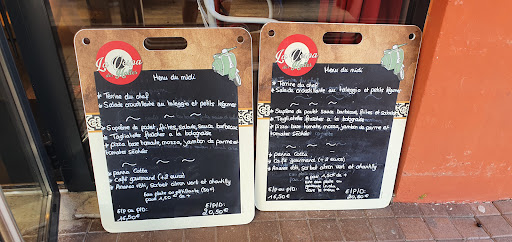 Menu du midi
* Terrine du chef
* Salade croustillante au taleggio et petits légumes
* Suprême de poulet, frites, salade, sauce barbecue
* Tagliatelle fraîches à la bolognaise
* pizza base tomate, mozza, jambon de parme et
tomates séchées
* panna Cotta
* Café gourmand (+2 euros)
* Ananas rôti, sorbet citron vert et chantilly
E/P ou P/D:
16,50€
E/P/D:
20,50€
Menu du midi
* Terrine du chef
* Salade croustillante au taleggio et petits légumes
* Suprême de poulet, sauce barbecue, frites et salade
* Tagliatelle fraîches à la bolognaise
* pizza base tomate, mozza, jambon de parme et
tomates séchées
* panna Cotta
* Café gourmand (+2 euros)
* Ananas rôti, sorbet citron vert et chantilly
E/P ou P/D:
16,50€
E/P/D:
20,50€